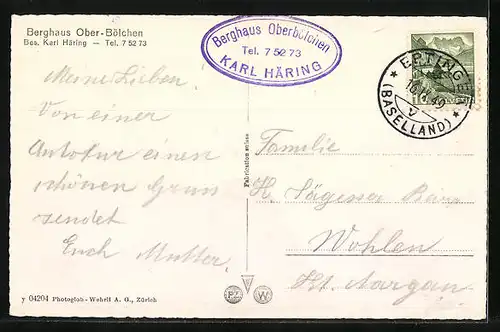 Berghaus Ober-Bölchen
Bes. Karl Häring — Tel. 7 52 73
Berghaus Oberbölchen
Tel. 7 52 73
KARL HÄRING
EPTINGEN
(BASELLAND)
Meine Lieben.
Von einer
Autotur einen
schönen Gruss
sendet
Euch Mutter.
Fabrication suisse
Familie
H. Sägesser
Wohlen
Kt. Aargau
y 04204 Photoglob-Wehrli A. G., Zürich
PZ W